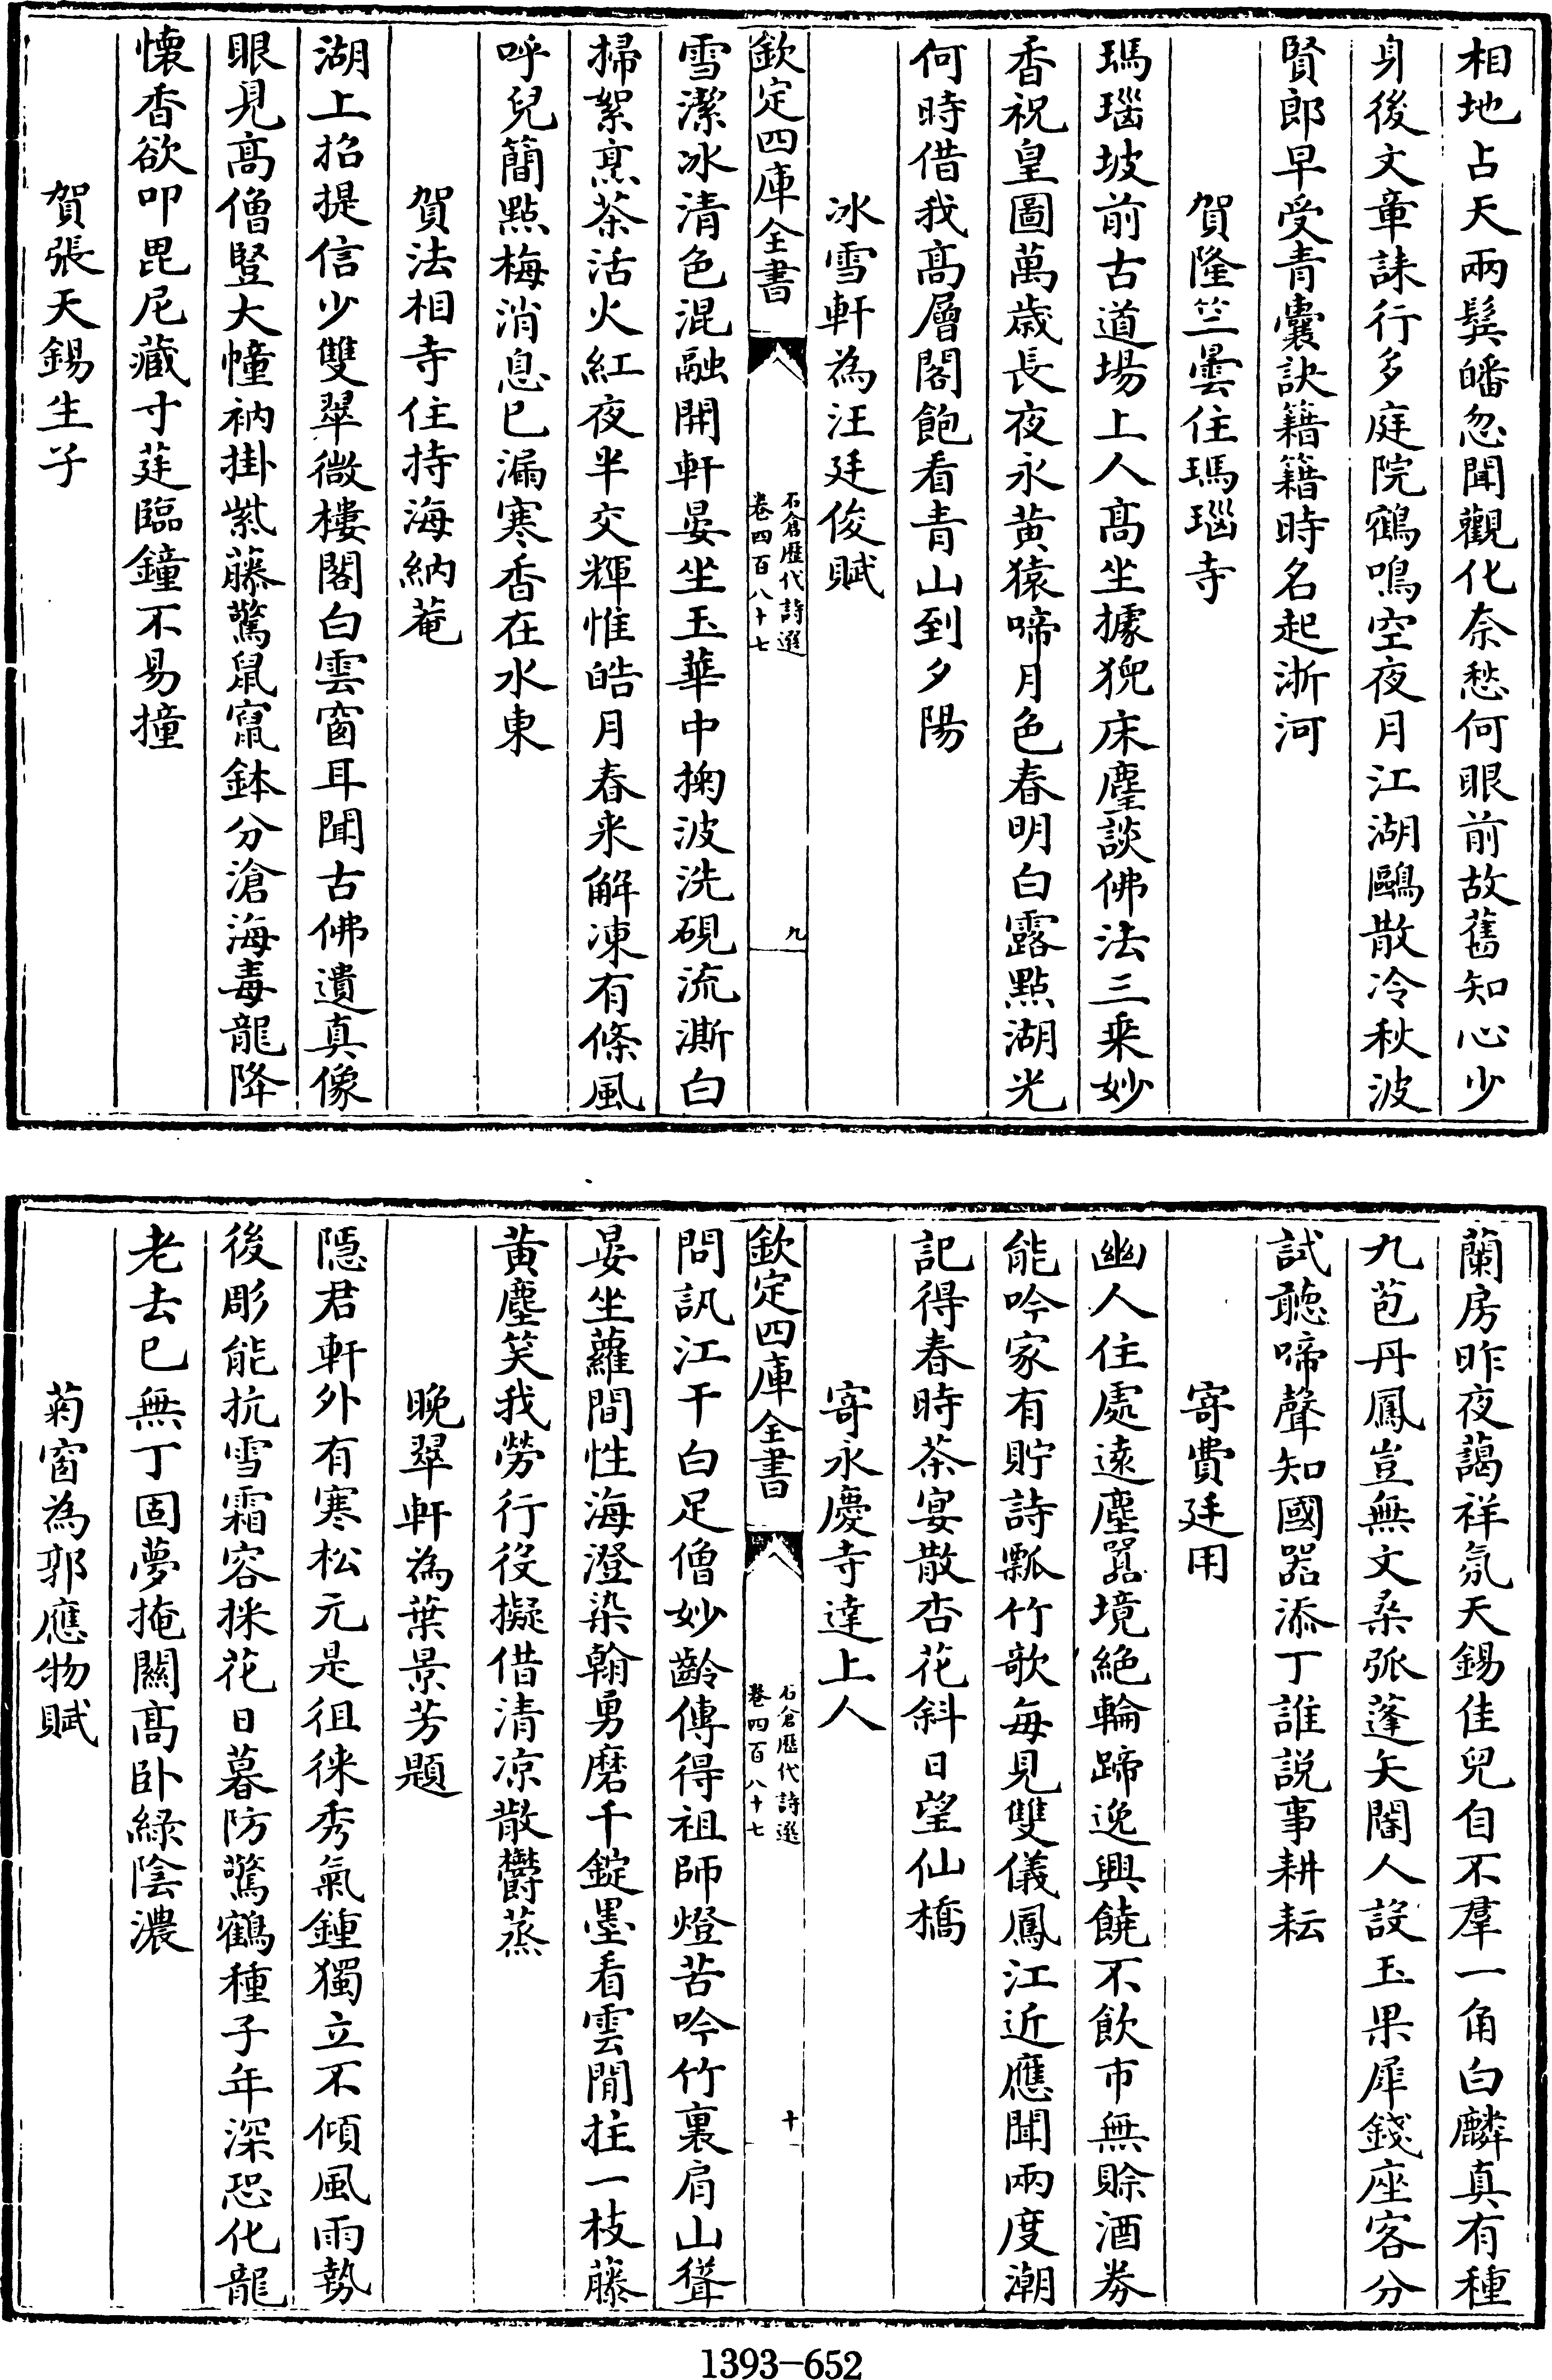 相地占天兩鬂皤忽聞觀化奈愁何眼前故舊知心少
身後文章誄行多庭院鶴鳴空夜月江湖鷗散冷秋波
賢郎早受青囊訣籍籍時名起浙河
賀隆竺曇住瑪瑙寺
瑪瑙坡前古道場上人髙坐據猊床麈談佛法三乗妙
香祝皇圖萬歳長夜永黄猿啼月色春明白露㸃湖光
何時借我髙層閣飽看青山到夕陽
冰雪軒為汪廷俊賦
欽定四庫全書
石倉歴代詩選
卷四百八十七
九
雪潔冰清色混融開軒晏坐玉華中掬波洗硯流澌白
掃絮烹茶活火紅夜半交輝惟皓月春来解凍有條風
呼兒簡㸃梅消息已漏寒香在水東
賀法相寺住持海納菴
湖上招提信少雙翠微樓閣白雲窗耳聞古佛遺真像
眼見髙僧豎大幢衲掛紫藤驚鼠竄鉢分滄海毒龍降
懐香欲叩毘尼藏寸莛臨鐘不易撞
賀張天錫生子
蘭房昨夜藹祥氛天錫佳兒自不羣一角白麟真有種
九苞丹鳳豈無文桑弧蓬矢閽人設玉果犀錢座客分
試聽啼聲知國器添丁誰説事耕耘
寄費廷用
幽人住處逺塵囂境絶輪蹄逸興饒不飲市無賒酒劵
能吟家有貯詩瓢竹歌每見雙儀鳳江近應聞兩度潮
記得春時茶宴散杏花斜日望仙橋
寄永慶寺達上人
欽定四庫全書
石倉歴代詩選
卷四百八十七
十
問訊江干白足僧妙齡傳得祖師燈苦吟竹裏肩山聳
晏坐蘿間性海澄染翰勇磨千錠墨看雲閒拄一枝藤
黄塵笑我勞行役擬借清凉散欝蒸
晚翠軒為葉景芳題
隠君軒外有寒松元是徂徠秀氣鍾獨立不傾風雨勢
後彫能抗雪霜容採花日暮防驚鶴種子年深恐化龍
老去已無丁固夢掩闗髙卧緑陰濃
菊窗為郭應物賦
1393-652